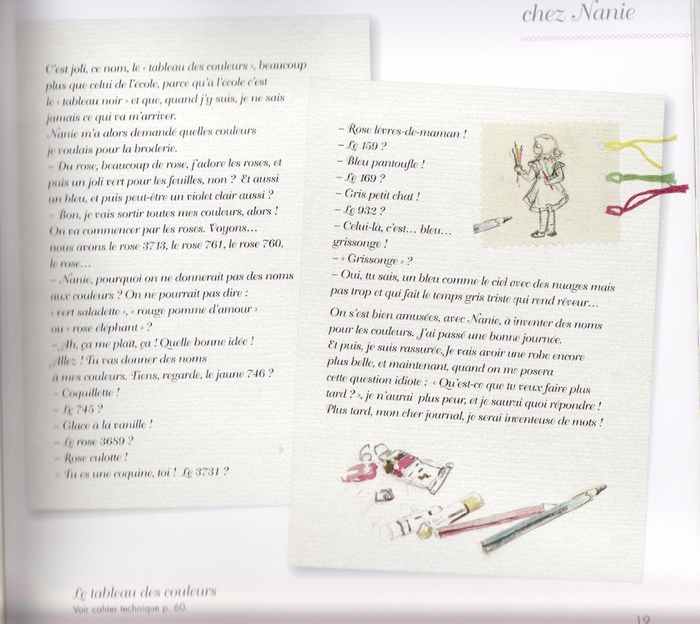 chez Nanie
C'est joli, ce nom, le « tableau des couleurs », beaucoup
plus que celui de l'école, parce qu'à l'école c'est
le « tableau noir » et que, quand j'y suis, je ne sais
jamais ce qui va m'arriver.
Nanie m'a alors demandé quelles couleurs
je voulais pour la broderie.
– Du rose, beaucoup de rose, j'adore les roses, et
puis un joli vert pour les feuilles, non ? Et aussi
un bleu, et puis peut-être un violet clair aussi ?
– Bon, je vais sortir toutes mes couleurs, alors !
On va commencer par les roses. Voyons...
nous avons le rose 3713, le rose 761, le rose 760,
le rose...
– Nanie, pourquoi on ne donnerait pas des noms
aux couleurs ? On ne pourrait pas dire :
« vert saladette », « rouge pomme d'amour »
ou « rose éléphant » ?
– Ah, ça me plaît, ça ! Quelle bonne idée !
Allez ! Tu vas donner des noms
à mes couleurs. Tiens, regarde, le jaune 746 ?
– Coquillette !
– Le 745 ?
– Glace à la vanille !
– Le rose 3689 ?
– Rose culotte !
– Tu es une coquine, toi ! Le 3731 ?
– Rose lèvres-de-maman !
– Le 159 ?
– Bleu pantoufle !
– Le 169 ?
– Gris petit chat !
– Le 932 ?
– Celui-là, c'est... bleu...
grissonge !
– « Grissonge » ?
– Oui, tu sais, un bleu comme le ciel avec des nuages mais
pas trop et qui fait le temps gris triste qui rend rêveur...
On s'est bien amusées, avec Nanie, à inventer des noms
pour les couleurs. J'ai passé une bonne journée.
Et puis, je suis rassurée. Je vais avoir une robe encore
plus belle, et maintenant, quand on me posera
cette question idiote : « Qu'est-ce que tu veux faire plus
tard ? », je n'aurai plus peur, et je saurai quoi répondre !
Plus tard, mon cher journal, je serai inventeuse de mots !
Le tableau des couleurs
Voir cahier technique p. 60.
19